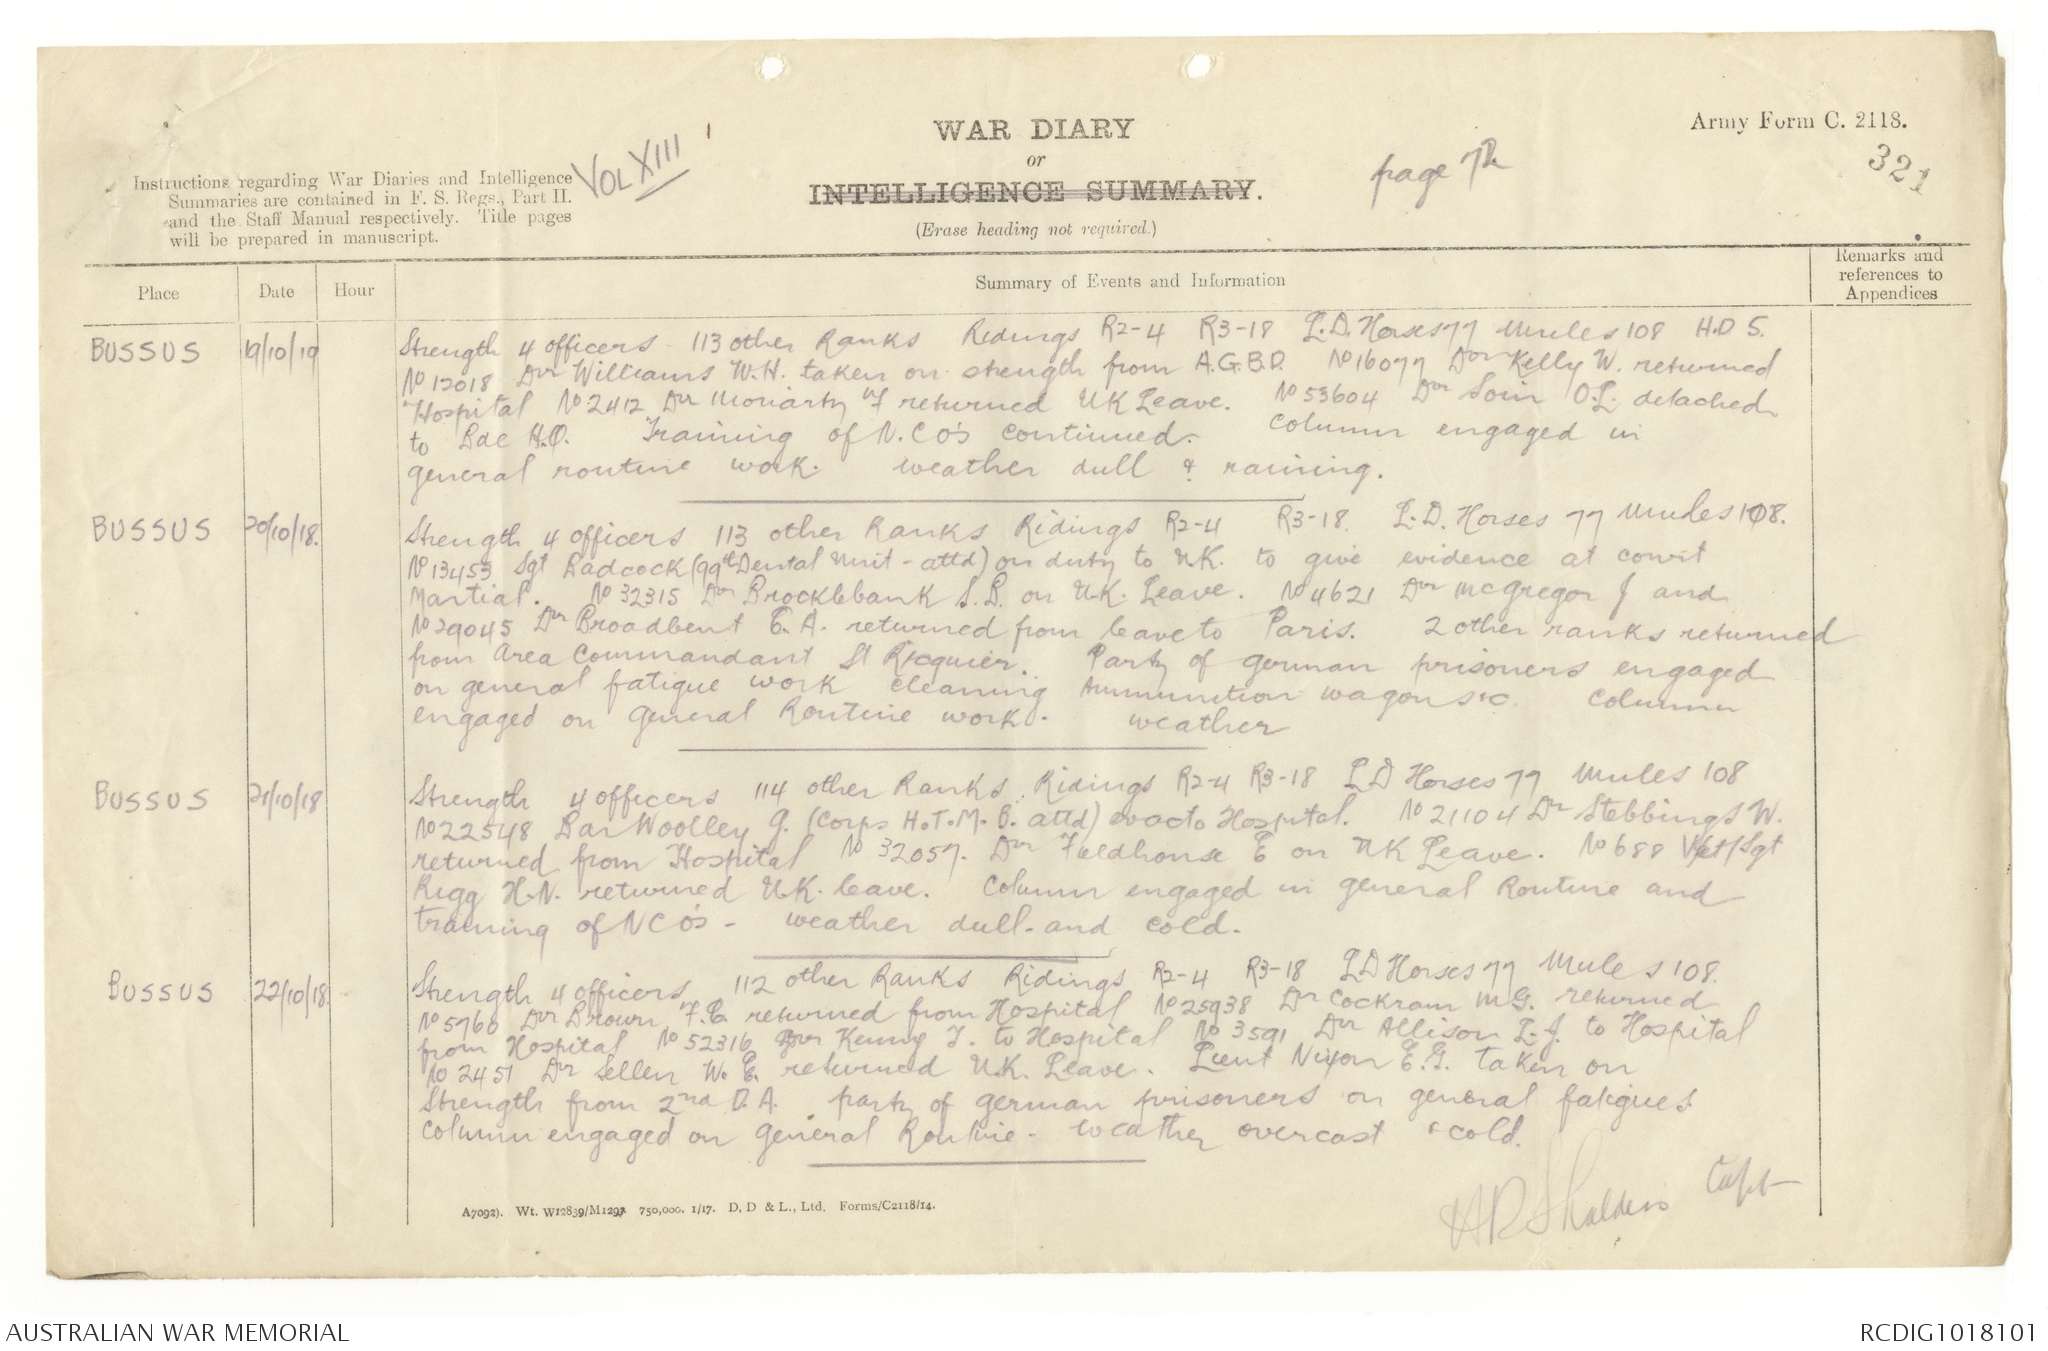 WAR DIARY
or
INTELLIGENCE SUMMARY.
(Erase heading not required.)
Army Form C. 2118.
Instructions regarding War Diaries and Intelligence
Summaries are contained in F. S. Regs., Part II.
and the Staff Manual respectively. Title pages
will be prepared in manuscript.
VOL XIII
page 7
321
Place Date Hour Summary of Events and Information Remarks and
references to
Appendices
BUSSUS 19/10/19 Strength 4 officers - 113 other Ranks Ridings R2-4 R3-18 L.D. Horses 77 Mules 108 H.D 5.
No 12018 Dvr Williams W.H. taken on strength from A.G.B.D. No 16077 Dvr Kelly W. returned
Hospital No 2412 Dvr Moriarty returned UK Leave. No 53604 Dvr O.L. detached
to Bde H.Q. Training of N.C.O's continued. Column engaged in
general routine work. weather dull & raining.
BUSSUS 20/10/18. Strength 4 officers 113 other Ranks Ridings R2-4 R3-18. L.D. Horses 77 Mules 108.
No 13453 Sgt Badcock (99th Dental Unit - attd) on duty to UK. to give evidence at court
Martial. No 32315 Dvr Brocklebank S.B. on U.K. Leave. No 4621 Dvr McGregor J and
No 29045 Dvr Broadbent E.A. returned from leave to Paris. 2 other ranks returned
from Area Commandant St Ricquier. Party of german prisoners engaged
on general fatigue work cleaning Ammunition wagons &c. Column
engaged on General Routine work. weather
BUSSUS 21/10/18 Strength 4 officers 114 other Ranks. Ridings R2-4 R3-18 L D Horses 77 Mules 108
No 22548 Bar Woolley G. (Corps H.T.M.B. attd) evac to Hospital. No 21104 Dr Stebbings W.
returned from Hospital No 32057. Dvr Fieldhouse E on UK Leave. No 688 Vet/Sgt
Rigg H.N. returned U.K. leave. Column engaged in general Routine and
training of NCO's - weather dull and cold.
BUSSUS 22/10/18. Strength 4 officers 112 other Ranks Ridings R2-4 R3-18 LD Horses 77 Mules 108.
No 5760 Dvr Brown F.E. returned from Hospital No 25938 Dvr Cockram M.G. returned
from Hospital No 52316 Dvr Kenny T. to Hospital No 3591 Dvr Allison L.J. to Hospital
No 2451 Dvr Sellen W.E. returned U.K. Leave. Lieut Nixon E.G. taken on
Strength from 2nd D.A. party of german prisoners on general fatigues.
Column engaged on general Routine - weather overcast & cold.
Capt
A7092). Wt. W12839/M1293 750,000. 1/17. D. D & L., Ltd. Forms/C2118/14.
AUSTRALIAN WAR MEMORIAL
RCDIG1018101